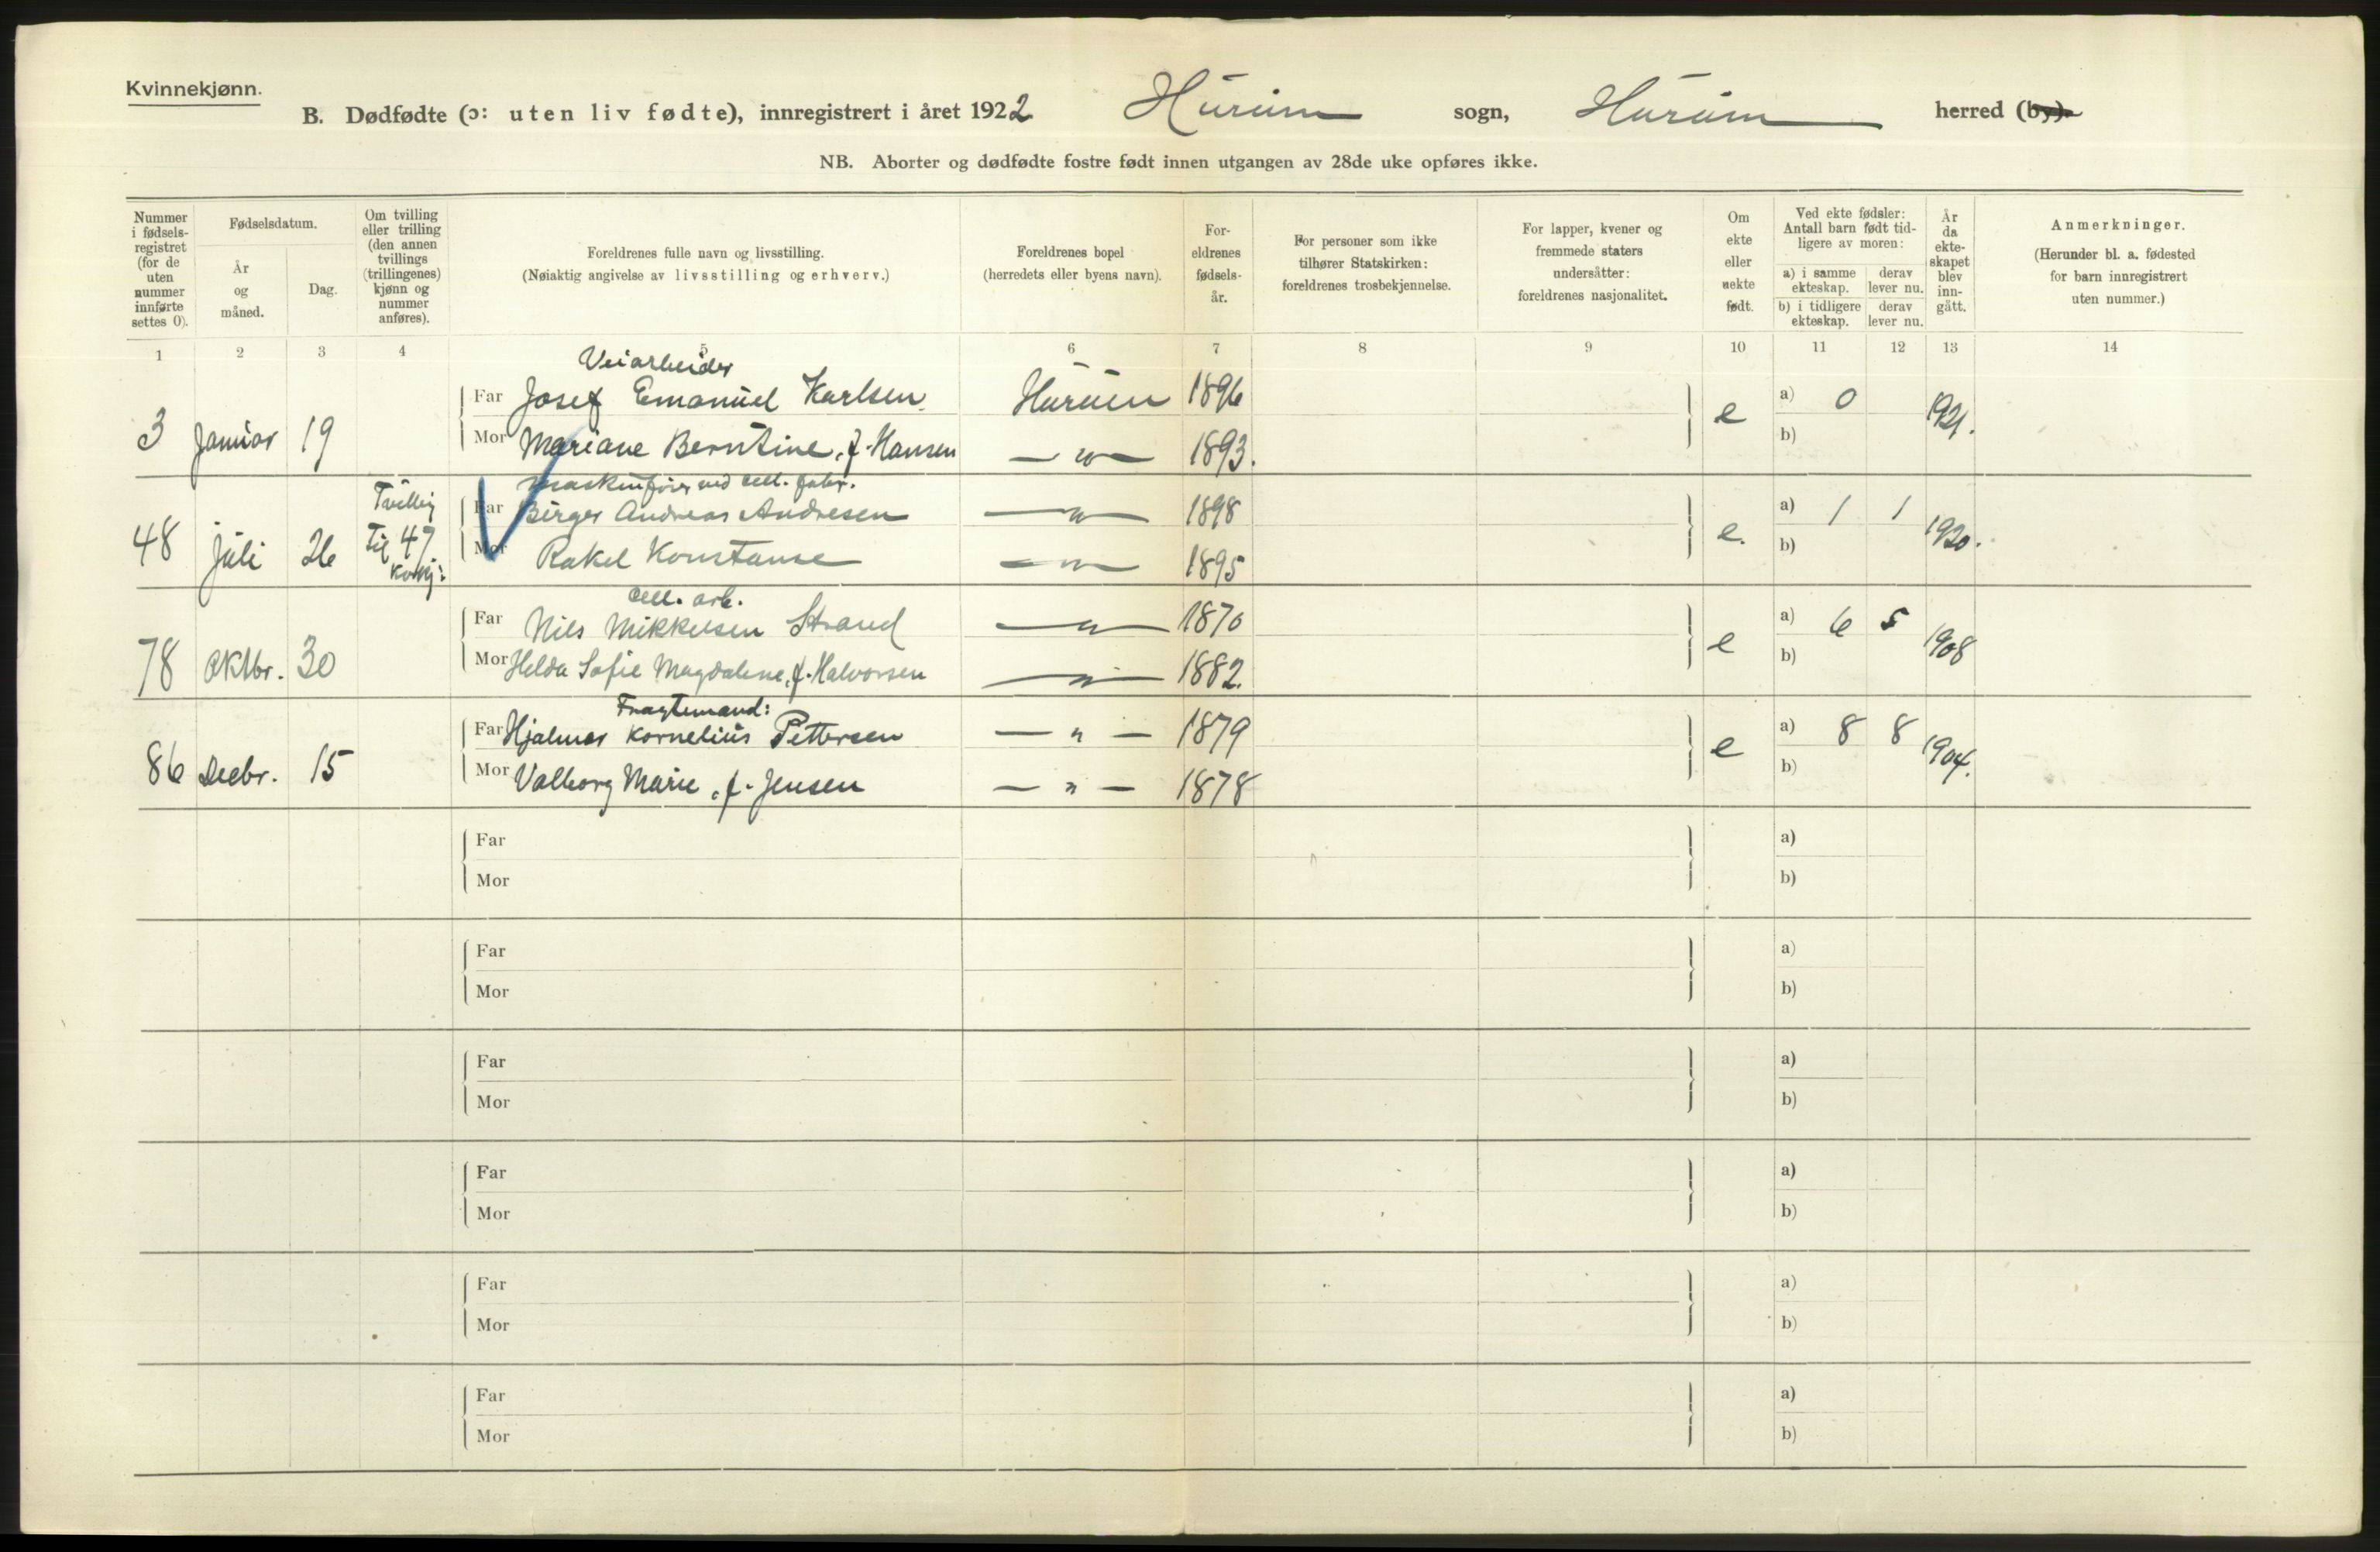 Kvinnekjønn.
B. Dødfødte (ɔ: uten liv fødte), innregistrert i året 1922 Hurum sogn, Hurum herred (by).
NB. Aborter og dødfødte fostre født innen utgangen av 28de uke opføres ikke.
Nummer i fødsels-registret (for de uten nummer innførte settes 0).
Fødselsdatum.
År og måned.
Dag.
Om tvilling eller trilling (den annen tvillings (trillingenes) kjønn og nummer anføres).
Foreldrenes fulle navn og livsstilling.
(Nøiaktig angivelse av livsstilling og erhverv.)
Foreldrenes bopel
(herredets eller byens navn).
For-eldrenes fødsels-år.
For personer som ikke tilhører Statskirken: foreldrenes trosbekjennelse.
For lapper, kvener og fremmede staters undersåtter: foreldrenes nasjonalitet.
Om ekte eller uekte født.
Ved ekte fødsler: Antall barn født tid-ligere av moren:
a) i samme ekteskap.
derav lever nu.
b) i tidligere ekteskap.
derav lever nu.
År da ekte-skapet blev inn-gått.
Anmerkninger.
(Herunder bl. a. fødested for barn innregistrert uten nummer.)
1 2 3 4 5 6 7 8 9 10 11 12 13 14
Veiarbeider
Far Josef Emanuel Karlsen Hurum 1896 a) 0
3 Januar 19 e 1921.
Mor Mariane Berntine, f. Hansen — " — 1893. b)
maskinfører ved cell. fabr.
Tvilling Far Birger Andreas Andresen — " — 1898 a) 1 1
48 Juli 26 til 47 e. 1920.
kvkj: Mor Rakel Konstanse — " — 1895 b)
cell. arb.
Far Nils Mikkelsen Strand — " — 1870 a) 6 5
78 Oktbr. 30 e 1908
Mor Helda Sofie Magdalene, f. Halvorsen — " — 1882. b)
Fragtemand:
Far Hjalmar Kornelius Pettersen — " — 1879 a) 8 8
86 Decbr. 15 e 1904.
Mor Valborg Marie, f. Jensen — " — 1878 b)
Far a)
Mor b)
Far a)
Mor b)
Far a)
Mor b)
Far a)
Mor b)
Far a)
Mor b)
Far a)
Mor b)